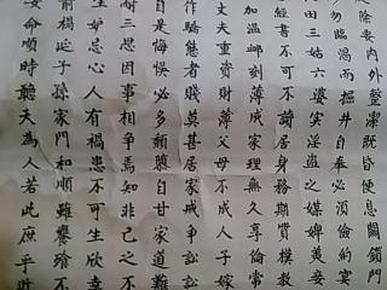 除要內外整潔既昏便息關鎖門
勿臨渴而掘井自奉必須儉約宴
田三姑六婆實淫盜之媒婢美妾
經書不可不讀居身務期質樸教
加溫卹刻薄成家理無久享倫常
丈夫重資財薄父母不成人子嫁
作驕態者賤莫甚居家戒爭訟訟
自是悔悞必多頹墮自甘家道難
耐三思因事相爭焉知非己之不
生妒忌心人有禍患不可生欣幸
箭禍延子孫家門和順雖饔飧不
安命順時聽天為人若此庶乎近